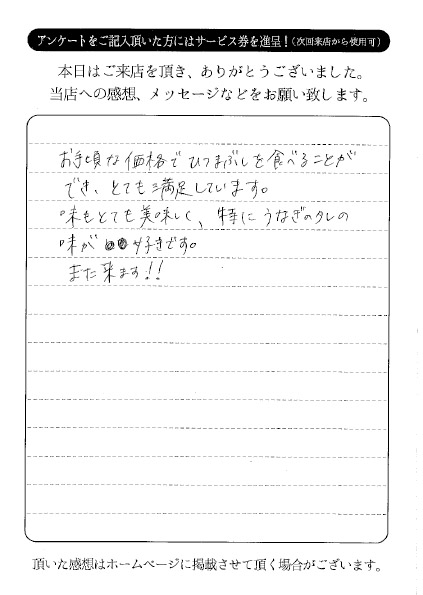 アンケートをご記入頂いた方にはサービス券を進呈！（次回来店から使用可）
本日はご来店を頂き、ありがとうございました。
当店への感想、メッセージなどをお願い致します。
お手頃な価格でひつまぶしを食べることが
でき、とても満足しています。
味もとても美味しく、特にうなぎのタレの
味が好きです。
また来ます!!
頂いた感想はホームページに掲載させて頂く場合がございます。